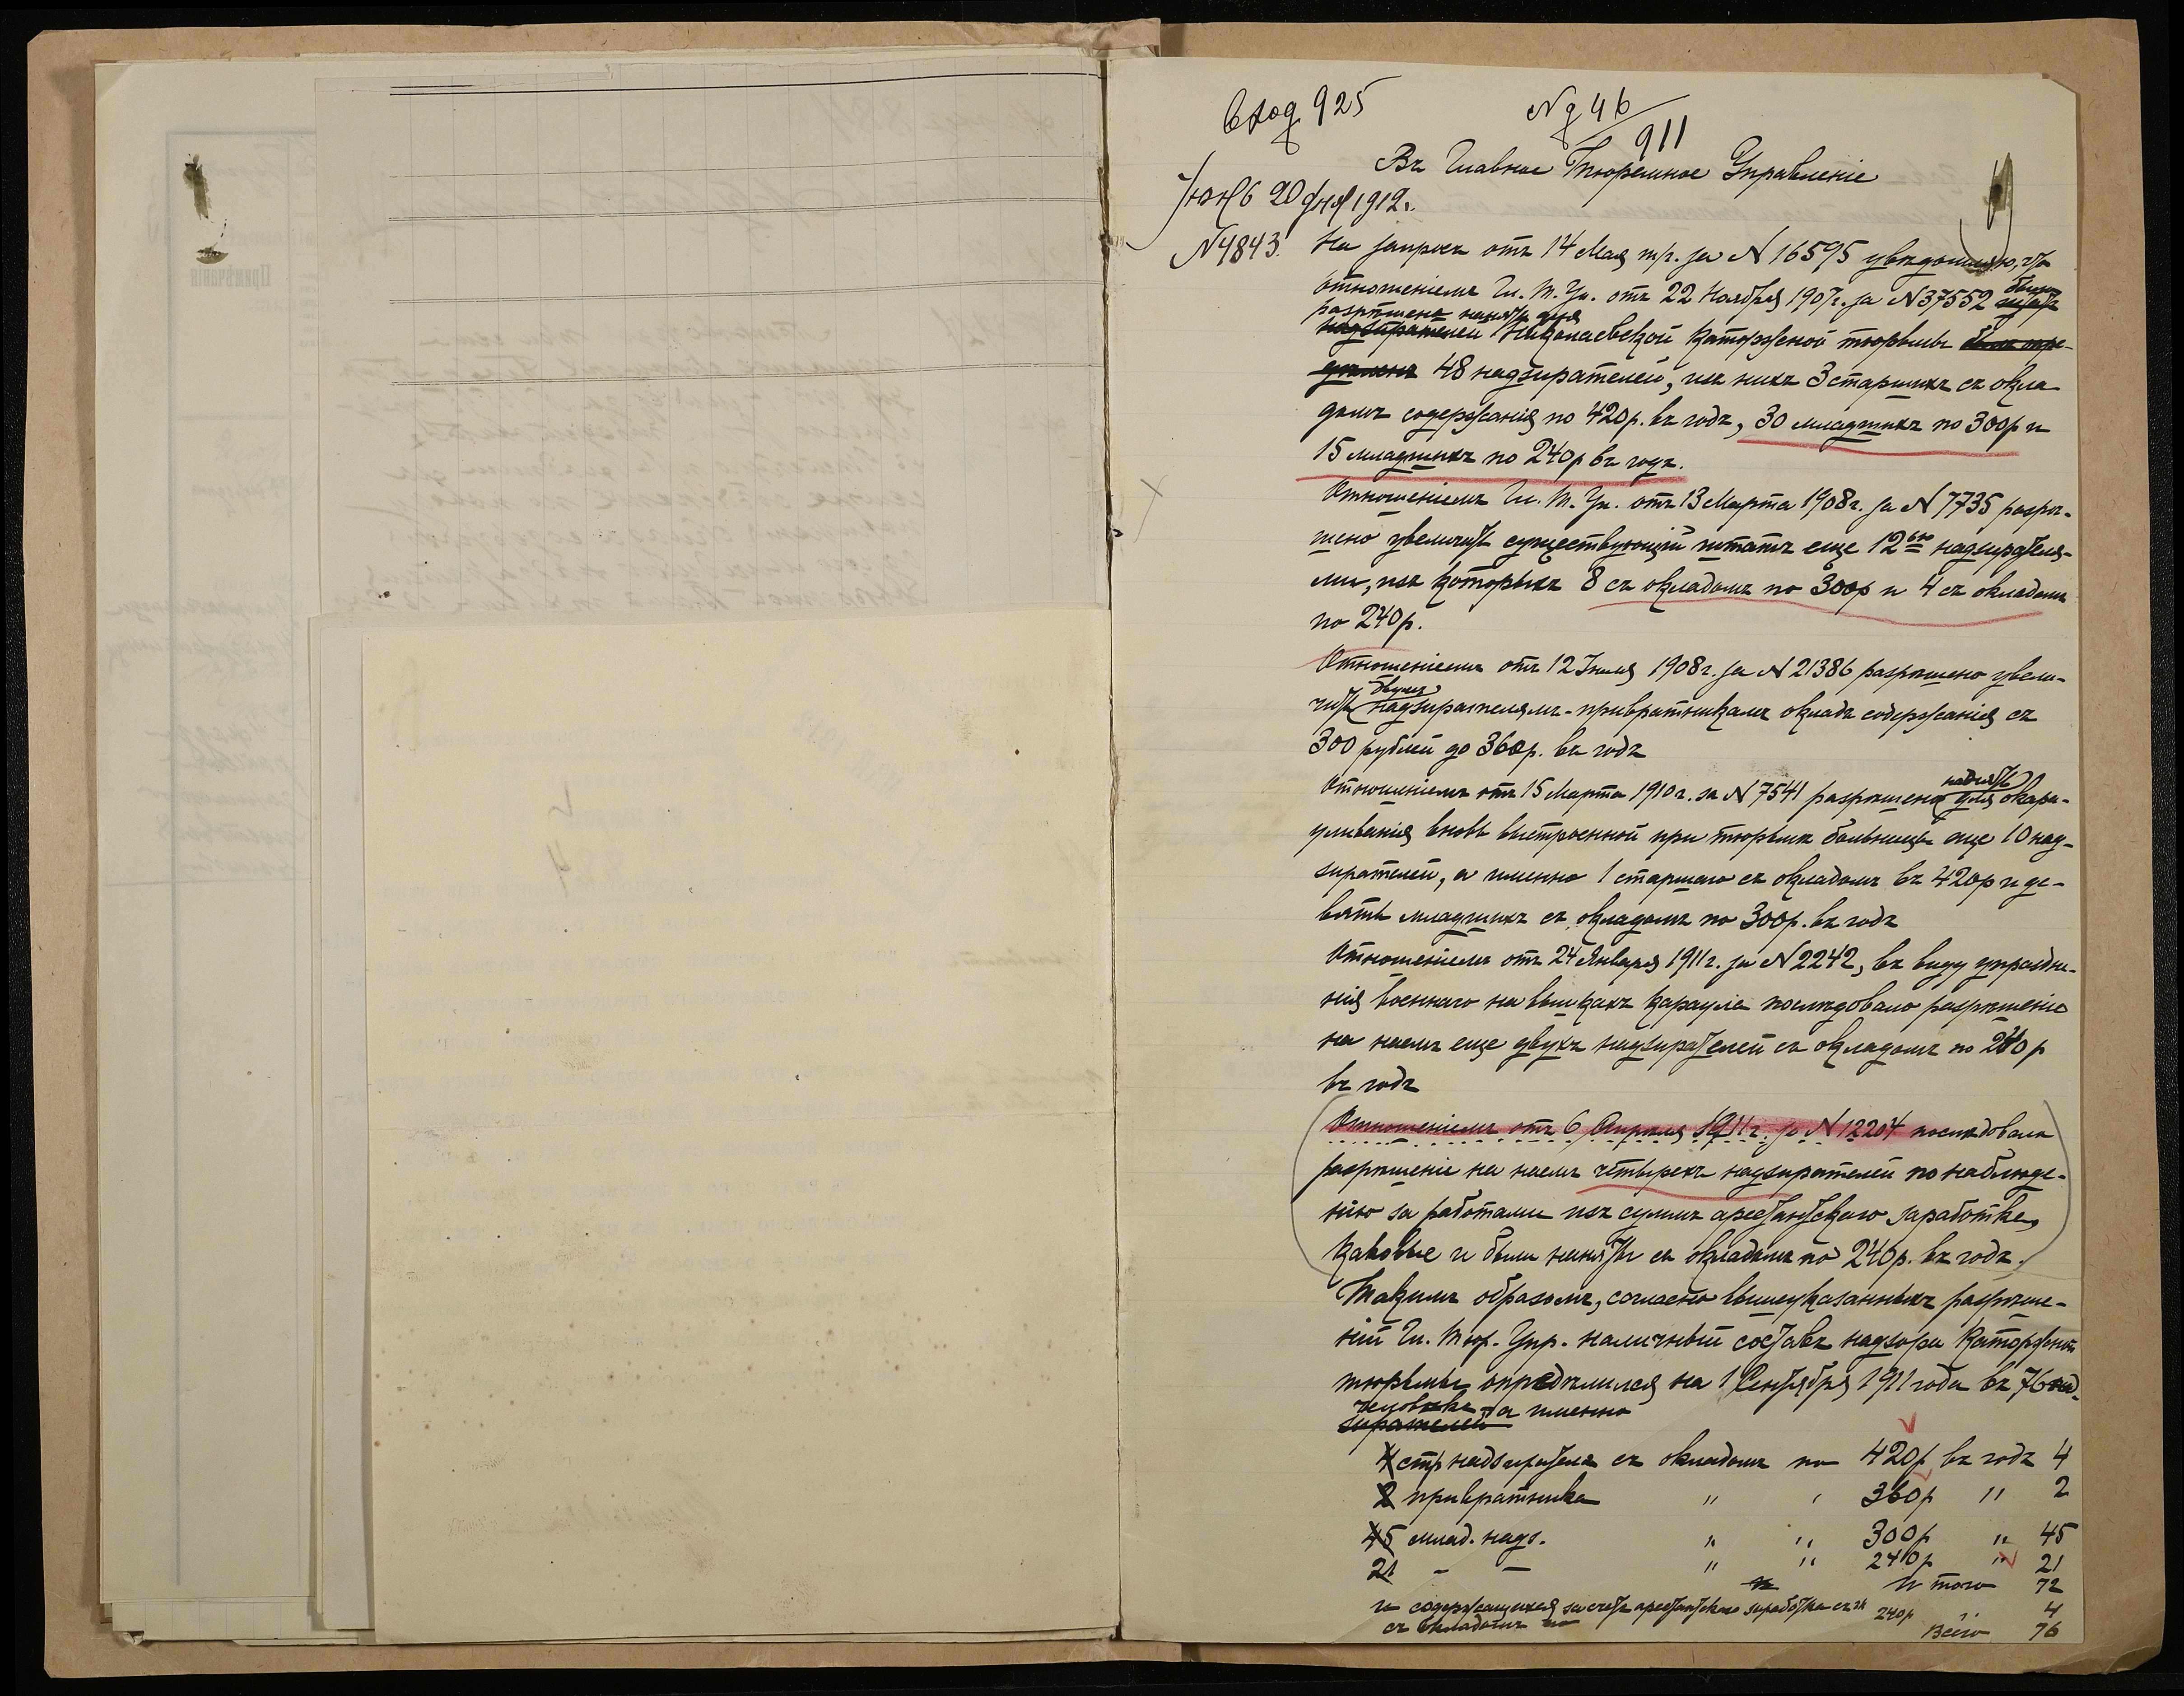 Вход 925
№ 46/911
Въ Главное Тюремное Управленіе
Іюня 20 дня 1912.
N 4843.
На запросъ отъ 14 Мая т/г. за N 16595 увѣдомляю, что
отношеніемъ Гл. Т. Уп. от 22 Ноября 1907г. за N 37552 было штатъ
разрѣшено нанять для
надзирателей Николаевской каторжной тюрьмы былъ опре-
дѣленъ 48 надзирателей, изъ нихъ 3 старшихъ съ окла
домъ содержанія по 420р. въ годъ, 30 младшихъ по 300р и
15 младшихъ по 240р въ годъ.
Отношеніемъ Гл. Т. Уп. отъ 13 Марта 1908г. за N 7735 разрѣ-
шено увеличить существующій штатъ еще 12ью надзирателя-
ми, изъ которыхъ 8 съ окладомъ по 300р и 4 съ окладомъ
по 240р.
Отношеніемъ отъ 12 Іюля 1908г. за N 21386 разрѣшено увели-
двумъ
чить надзирателямъ-привратникамъ окладъ содержанія съ
300 рублей до 360р. въ годъ
нанять
Отношеніемъ отъ 15 Марта 1910г. за N 7541 разрѣшено для окара-
уливанія вновь выстроенной при тюрьмѣ больницы еще 10 над-
зирателей, а именно 1 старшаго съ окладомъ въ 420р и де-
вять младшихъ съ окладомъ по 300р. въ годъ
Отношеніемъ отъ 24 Января 1911г. за N 2242, въ виду упраздне-
нія военнаго на вышкахъ караула послѣдовало разрѣшеніе
на наемъ еще двухъ надзирателей съ окладомъ по 240р
въ годъ
Отношеніемъ отъ 6 Апрѣля 1911г. за N 12204 послѣдовало
разрѣшеніе на наемъ четырехъ надзирателей по наблюде-
нію за работами изъ суммъ арестантскаго заработка,
каковые и были наняты съ окладомъ по 240р. въ годъ.
Такимъ образомъ, согласно вышеуказанныхъ разрѣше-
ній Гл. Тюр. Упр. наличный составъ надзора каторжной
тюрьмы опредѣлился на 1 Сентября 1911 года въ 76 над-
человѣка, а именно
зирателей
4 стр надзирателя съ окладомъ по 420р въ годъ 4
2 привратника " " 360р " 2
45 млад. надз. " " 300р " 45
21 — — " " 240р " 21
Итого 72
и содержащихся за счетъ арестантскаго заработка
съ окладомъ по 240р " 4
Всего 76